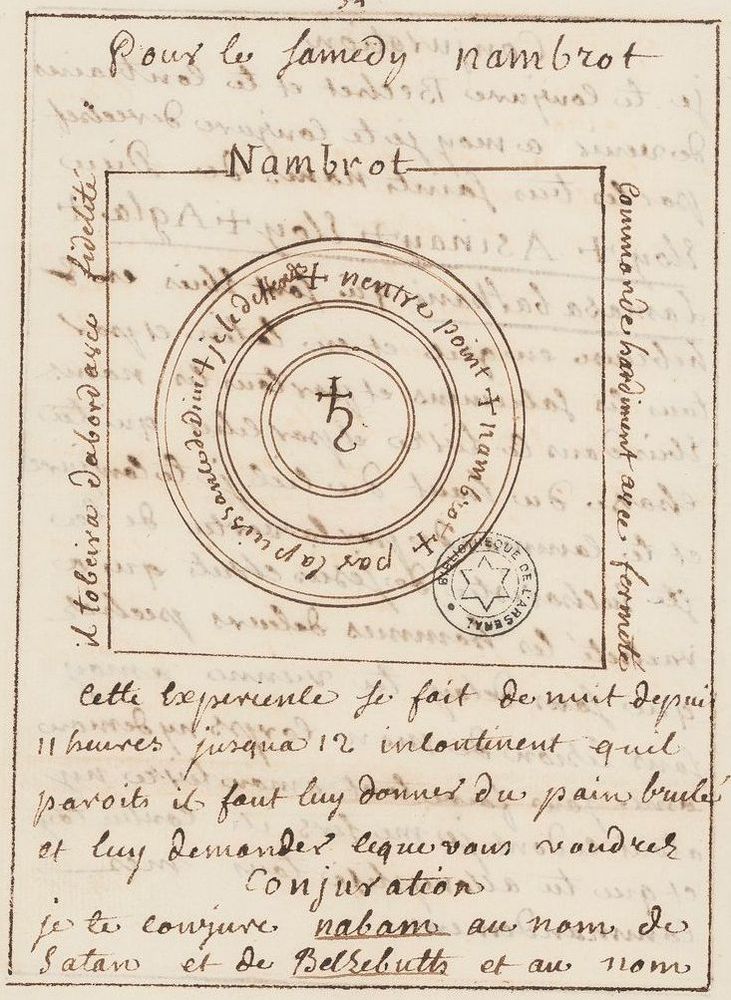 Pour le samedy nambrot
Nambrot
il tobeira dabord avec fidelité
Commande hardiment avec fermeté
+ nentre point + nambrot +
par la puissance de Dieu + je le deffends
♄
BIBLIOTHEQUE DE L'ARSENAL
Cette Experience se fait de nuit depuis
11 heures jusqua 12 incontinent quil
paroits il faut luy donner du pain brulé
et luy demander leque vous voudrez
Conjuration
je te conjure nabam au nom de
Satan et de Belzebuth et au nom